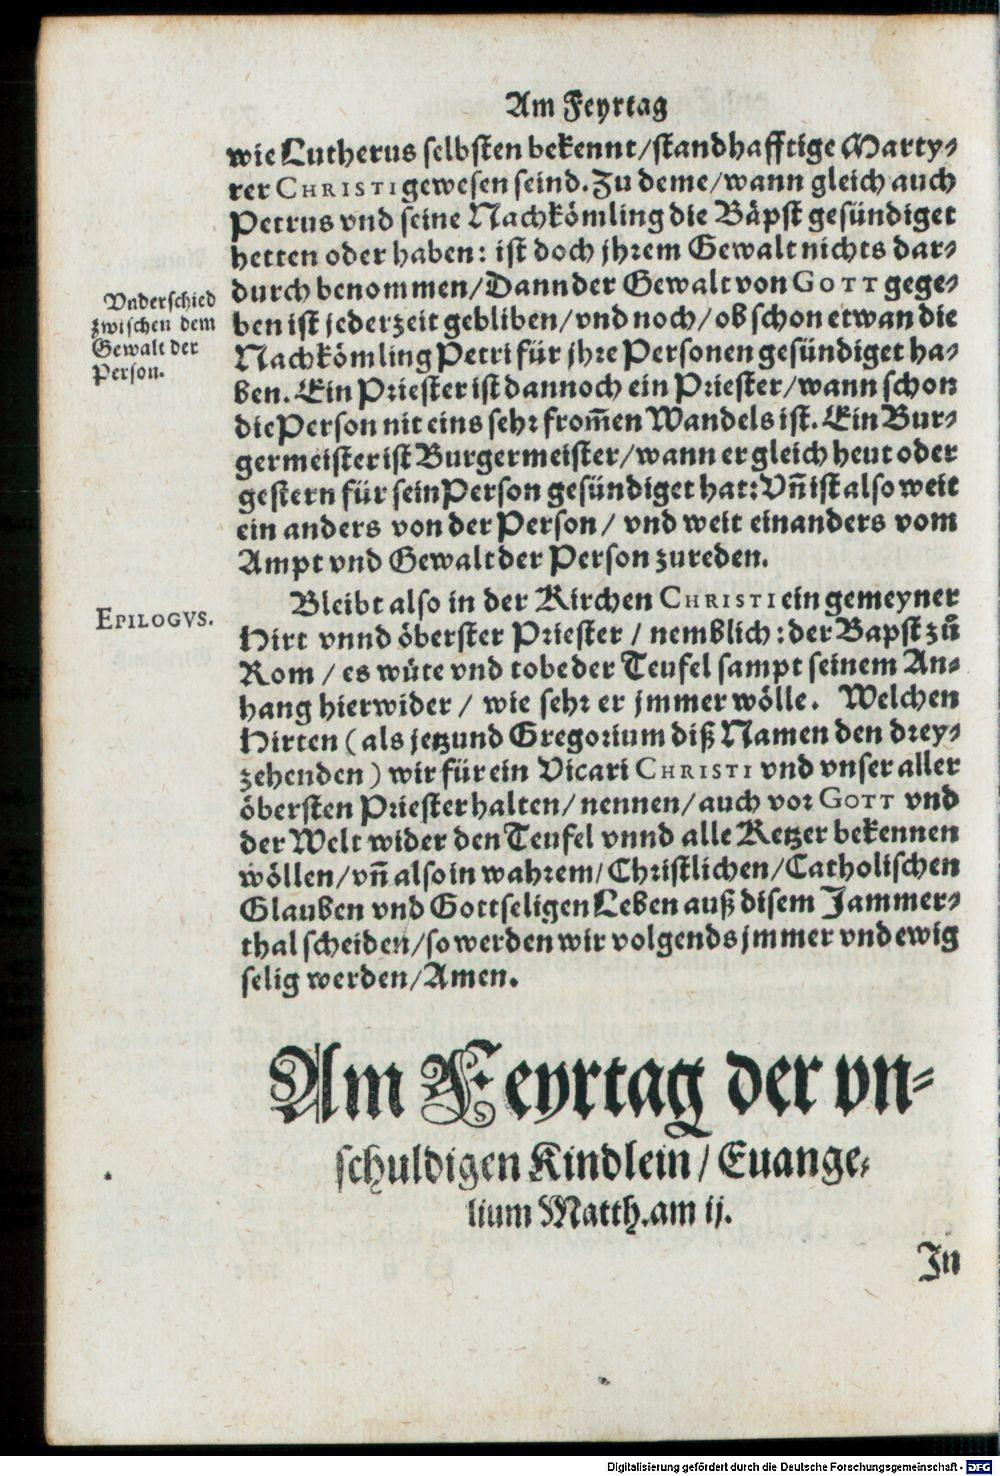 Am Feyrtag
wie Lutherus selbsten bekennt/standhafftige Marty-
rer CHRISTI gewesen seind. Zu deme/wann gleich auch
Petrus vnd seine Nachkömling die Bäpst gesündiget
hetten oder haben: ist doch jhrem Gewalt nichts dar-
durch benommen/Dann der Gewalt von GOTT gege-
ben ist jederzeit gebliben/vnd noch/ob schon etwan die
Nachkömling Petri für jhre Personen gesündiget ha-
ben. Ein Priester ist dannoch ein Priester/wann schon
die Person nit eins sehr from̃en Wandels ist. Ein Bur-
germeister ist Burgermeister/wann er gleich heut oder
gestern für sein Person gesündiget hat: Vñ ist also weit
ein anders von der Person/ vnd weit ein anders vom
Ampt vnd Gewalt der Person zureden.
Vnderschied
zwischen dem
Gewalt der
Person.
Bleibt also in der Kirchen CHRISTI ein gemeyner
Hirt vnnd öberster Priester / nemblich: der Bapst zů
Rom / es wüte vnd tobe der Teufel sampt seinem An-
hang hierwider / wie sehr er jmmer wölle. Welchen
Hirten (als jetzund Gregorium diß Namen den drey-
zehenden) wir für ein Vicari CHRISTI vnd vnser aller
öbersten Priester halten/nennen/auch vor GOTT vnd
der Welt wider den Teufel vnnd alle Ketzer bekennen
wöllen/vñ also in wahrem/Christlichen/Catholischen
Glauben vnd Gottseligen Leben auß disem Jammer-
thal scheiden/so werden wir volgends jmmer vnd ewig
selig werden/Amen.
EPILOGVS.
Am Feyrtag der vn-
schuldigen Kindlein/Euange-
lium Matth.am ij.
In
Digitalisierung gefördert durch die Deutsche Forschungsgemeinschaft - DFG